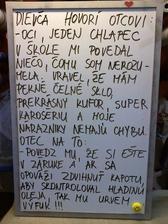 DIEVČA HOVORÍ OTCOVI:
-OCI, JEDEN CHLAPEC
V ŠKOLE MI POVEDAL
NIEČO, ČOMU SOM NEROZU-
MELA. VRAVEL, ŽE MÁM
PEKNÉ ČELNÉ SKLO,
PREKRÁSNY KUFOR, SUPER
KAROSERIU A MOJE
NÁRAZNÍKY NEMAJÚ CHYBU.
OTEC NA TO:
-POVEDZ MU, ŽE SI EŠTE
V ZÁRUKE A AK SA
OPOVÁŽI ZDVIHNÚŤ KAPOTU,
ABY SKONTROLOVAL HLADINU
OLEJA, TAK MU URVEM
VÝFUK !!!